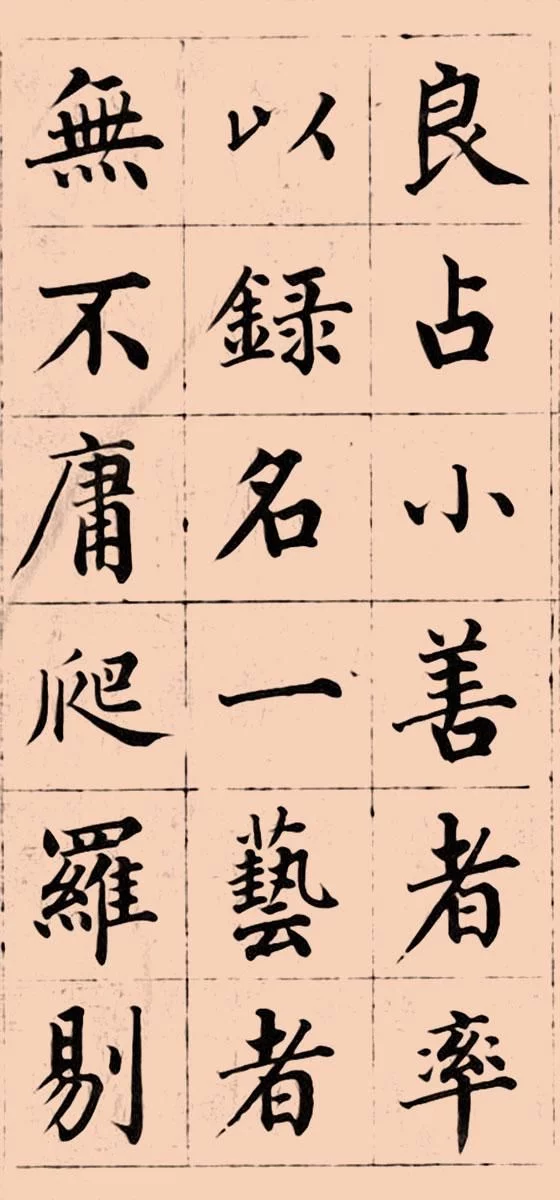 良占小善者率
以録名一藝者
無不庸爬羅剔